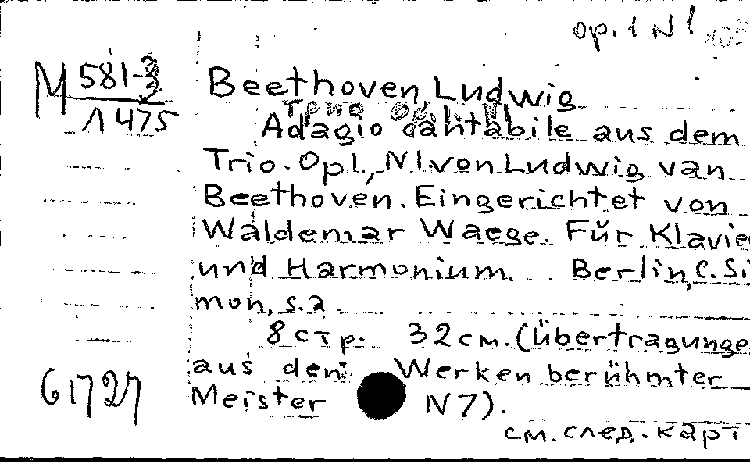 op. 1 N 1
M 581-3
Beethoven, Ludwig
Трио
1475
Adagio cantabile aus dem
Trio. Op1., N1 von Ludwig van
Beethoven. Eingerichtet von
Waldemar Waege. Für Klavie
und Harmonium. Berlin, C. Si
mon, s.a.
8 стр. 32 см. (Übertragunge
aus den Werken berühmter
61727
Meister N 7).
см. след. карт